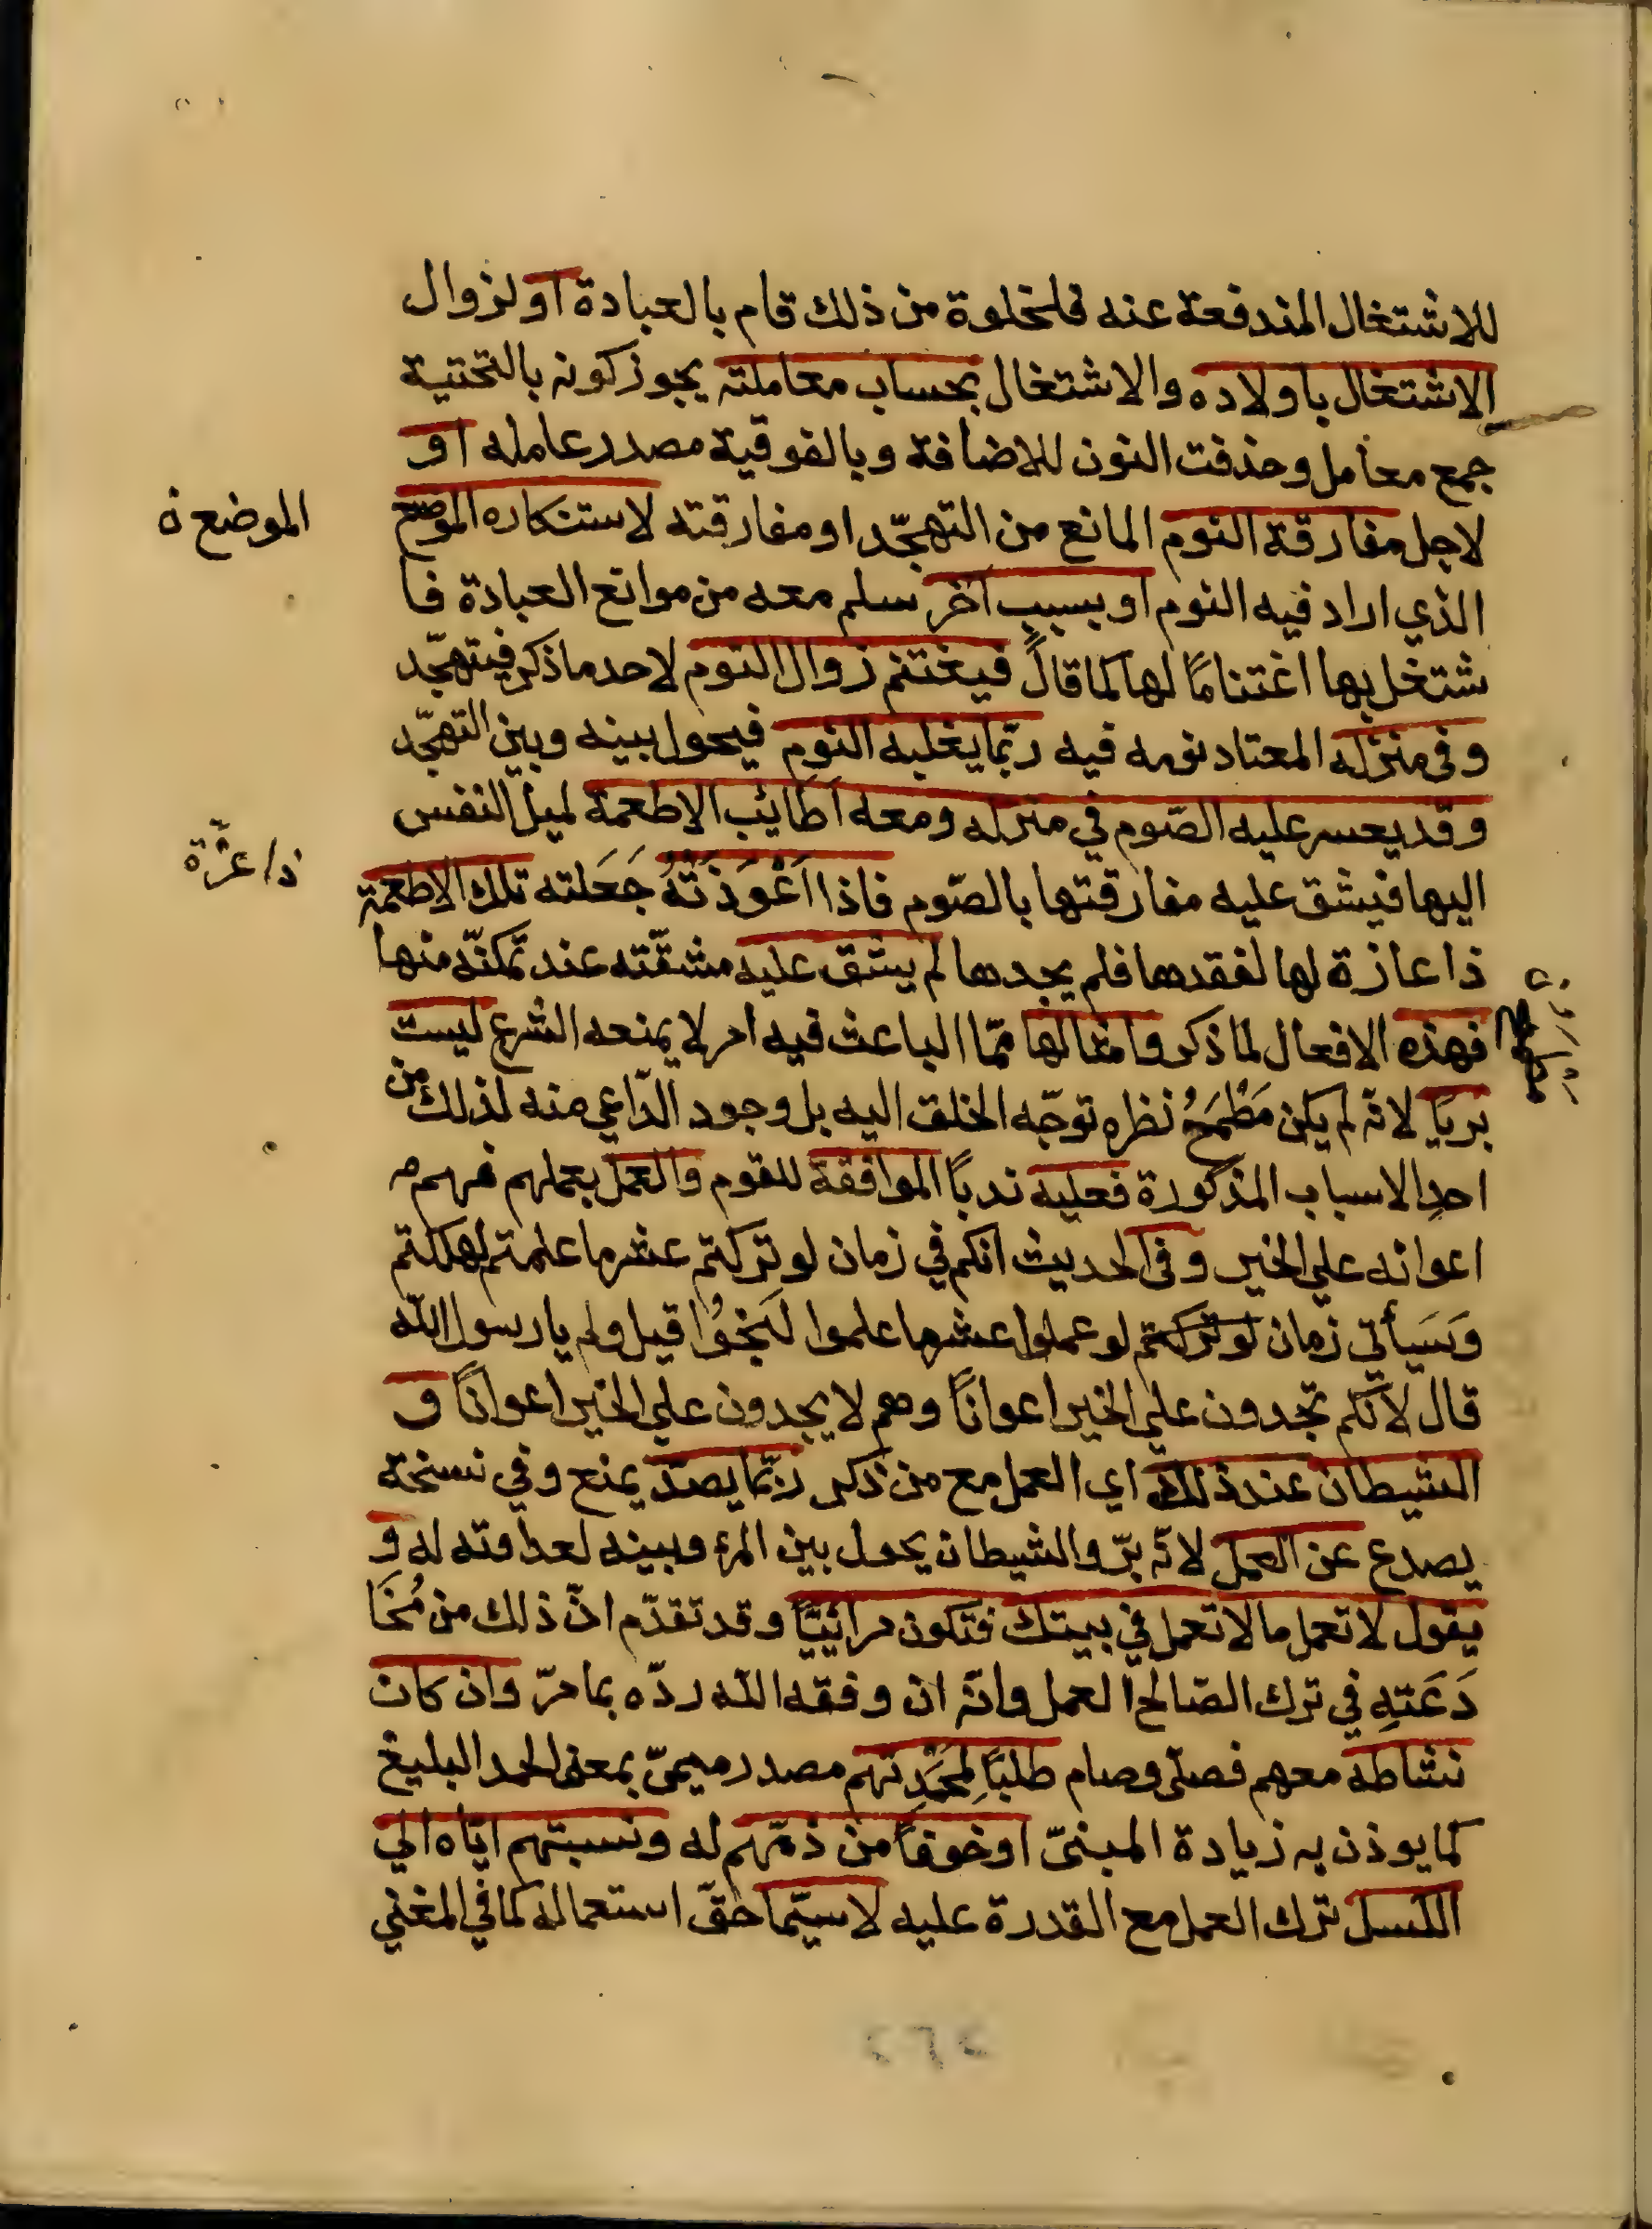 للاشتغال المندفعة عنه فلخلوة من ذلك قام بالعبادة او لزوال
الاشتغال باولاده والاشتغال بحساب معاملته يجوز كونه بالتحتية
جمع معامل وحذفت النون للاضافة وبالفوقية مصدر عامله او
لاجل مفارقة النوم المانع من التهجّد او مفارقته لاستنكاره الموضع
الموضع ة
الذي اراد فيه النوم او بسبب آخر سلم معه من موانع العبادة فا
شتغل بها اغتنامًا لها كما قال فيغتنم زوال النوم لاحد ما ذكر فيتهجّد
وفى منزله المعتاد نومه فيه ربّما يغلبه النوم فيحول بينه وبين التهجّد
وقد يعسر عليه الصّوم في منزله ومعه اطائب الاطعمة لميل النفس
اليها فيشق عليه مفارقتها بالصّوم فاذا اَعْوَزَتْهُ جَعَلته تلك الاطعمة
ذا عازة لها لفقدها فلم يجدها لم يشق عليه مشقّته عند تمكنّه منها
فهذه الافعال لما ذكر وامثالها ممّا الباعث فيه امر لا يمنعه الشرع ليست
بريَا لانه لم يكن مَطْمَحُ نظره توجّه الخلق اليه بل وجود الدّاعي منه لذلك من
احدِ الاسباب المذكورة فعليه ندبًا الموافقة للقوم والعمل بعملهم فهم م
اعوانه على الخير وفى الحديث انكم في زمان لو تركتم عشر ما علمتم لهلكتم
وَسَيأتي زمان لو تركتم لو عملوا عشر ما علموا لَنجَوُا قيل ولم يا رسول الله
قال لانّكم تجدون علي الخير اعوانًا وهم لا يجدون علي الخير اعوانًا و
الشيطان عند ذلك اي العمل مع من ذكر ربّما يصدّ يمنع وفي نسخة
يصدع عن العمل لانّه برّ والشيطان يحول بين المرء وبينه لعداوته له و
يقول لا تعمل ما لا تعمل في بيتك فتكون مرائيًّا وقد تقدّم انّ ذلك من مُخَا
دَعَتهِ في ترك الصّالح العمل وانّه ان وفقه الله ردّه بما مرّ وان كان
نشاطه معهم فصلّى وصام طلبًا لِمَحْمَدِتهم مصدر ميميّ بمعنى الحمد البليغ
كما يوذن به زيادة المبنىّ او خوفًا من ذمّهم له ونسبتهم ايّاه الي
الكسل ترك العمل مع القدرة عليه لاسيّما حقّ استعماله كما في المغني